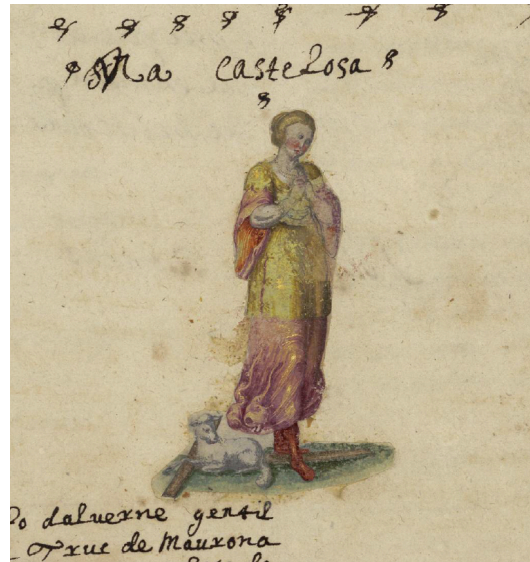 Ma castelosa
o daluerne gentil
Truc de Mauxona